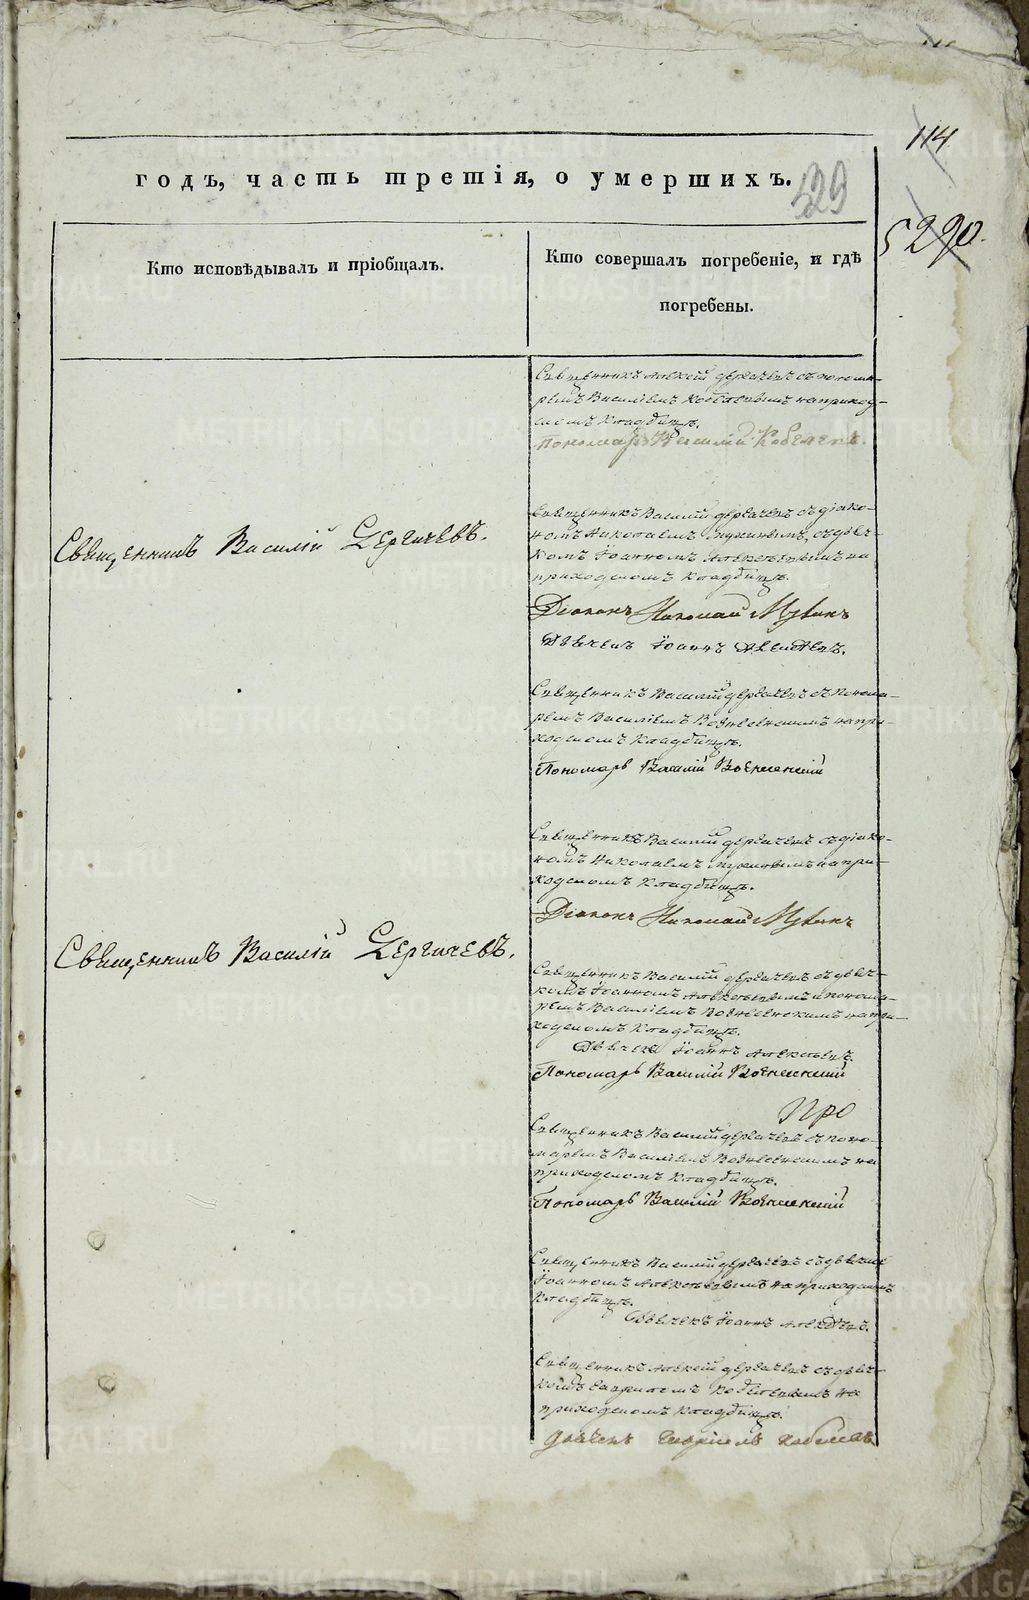 114
годъ, часть третія, о умершихъ.
529
5290.
Кто исповѣдывалъ и пріобщалъ.
Кто совершалъ погребеніе, и гдѣ
погребены.
Священникъ Алексій Дергачевъ съ понома-
ремъ Василіемъ Кобелевымъ на приход-
скомъ кладбищѣ.
Пономарь Василій Кобелевъ.
Священникъ Василій Дергачевъ съ діако-
номъ Николаемъ Мукинымъ, съ дьяч-
комъ Іоанномъ Алексѣевымъ на
приходскомъ кладбищѣ.
Священникъ Василій Дергачевъ.
Діаконъ Николай Мукинъ
Дьячекъ Іоаннъ Алексѣевъ.
Священникъ Василій Дергачевъ съ понома-
ремъ Василіемъ Вознесенскимъ на при-
ходскомъ кладбищѣ.
Пономарь Василій Вознесенскій
Священникъ Василій Дергачевъ съ діако-
номъ Николаемъ Мукинымъ на при-
ходскомъ кладбищѣ.
Діаконъ Николай Мукинъ
Священникъ Василій Дергачевъ.
Священникъ Василій Дергачевъ съ дьяч-
комъ Іоанномъ Алексѣевымъ и понома-
ремъ Василіемъ Вознесенскимъ на при-
ходскомъ кладбищѣ.
Дьячекъ Іоаннъ Алексѣевъ
Пономарь Василій Вознесенскій
Про
Священникъ Василій Дергачевъ съ поно-
маремъ Василіемъ Вознесенскимъ на
приходскомъ кладбищѣ.
Пономарь Василій Вознесенскій
Священникъ Василій Дергачевъ съ дьячкомъ
Іоанномъ Алексѣевымъ на приходскомъ
кладбищѣ.
Дьячекъ Іоаннъ Алексѣевъ.
Священникъ Алексій Дергачевъ съ дьяч-
комъ Гавріиломъ Кобелевымъ на
приходскомъ кладбищѣ.
Дьячекъ Гавріилъ Кобелевъ
METRIKI.GASO-URAL.RU